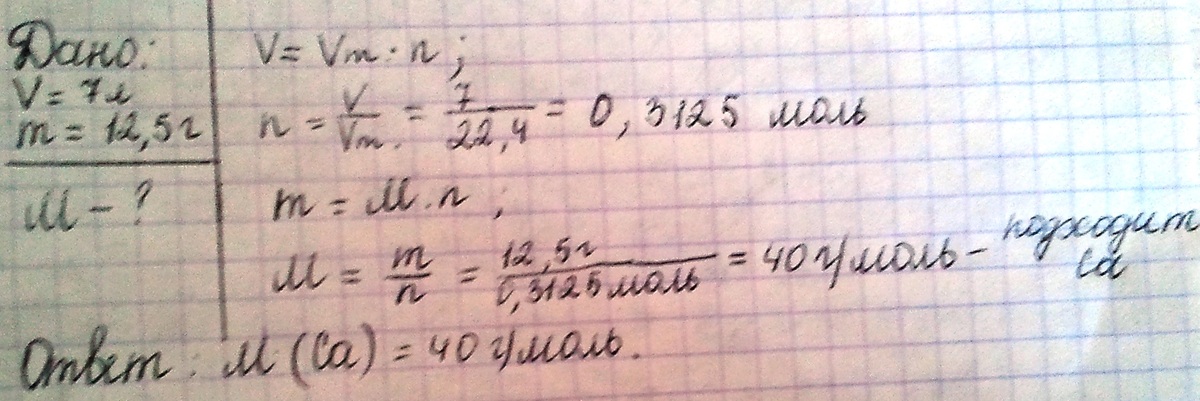 Дано:
V = 7л
m = 12,5г
М – ?
V = Vm · n ;
n = V/Vm. = 7/22,4 = 0,3125 моль
m = М · n ;
М = m/n = 12,5г/0,3125моль = 40 г/моль – подходит Ca
Ответ : М (Ca) = 40 г/моль.